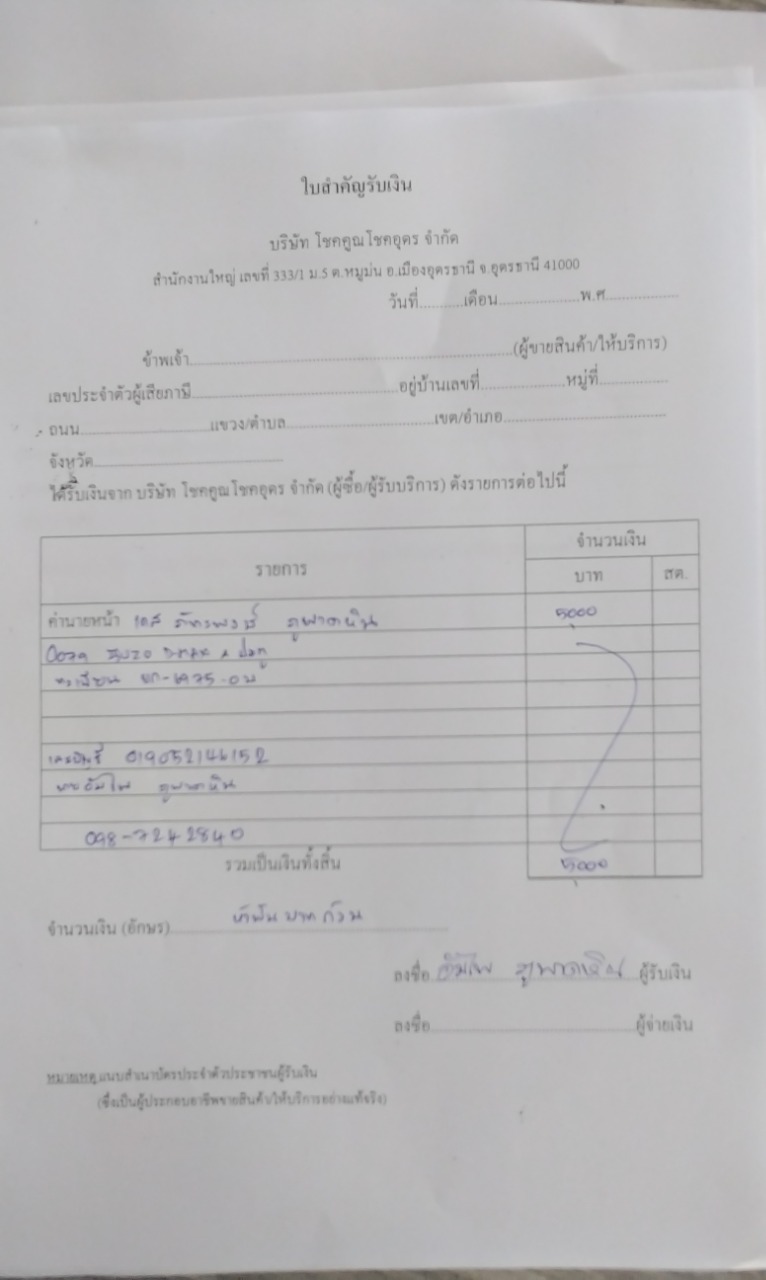 ใบสำคัญรับเงิน
บริษัท โชคคูณโชคอุดร จำกัด
สำนักงานใหญ่ เลขที่ 333/1 ม.5 ต.หมูม่น อ.เมืองอุดรธานี จ.อุดรธานี 41000
วันที่...........เดือน....................พ.ศ..................
ข้าพเจ้า................................................................(ผู้ขายสินค้า/ให้บริการ)
เลขประจำตัวผู้เสียภาษี....................................................อยู่บ้านเลขที่.....................หมู่ที่.................
ถนน................................แขวง/ตำบล.....................................เขต/อำเภอ.........................................
จังหวัด................................................
ได้รับเงินจาก บริษัท โชคคูณโชคอุดร จำกัด (ผู้ซื้อ/ผู้รับบริการ) ดังรายการต่อไปนี้
รายการ จำนวนเงิน
บาท สต.
ค่านายหน้า เคส ภูผาหิน 5000
4 ประตู
ทะเบียน
เลขบัญชี 019052146152
098-7242840
รวมเป็นเงินทั้งสิ้น 5000
จำนวนเงิน (อักษร) ห้าพันบาทถ้วน
ลงชื่อ ผู้รับเงิน
ลงชื่อ.................................................ผู้จ่ายเงิน
หมายเหตุ แนบสำเนาบัตรประจำตัวประชาชนผู้รับเงิน
(ซึ่งเป็นผู้ประกอบอาชีพขายสินค้า/ให้บริการอย่างแท้จริง)